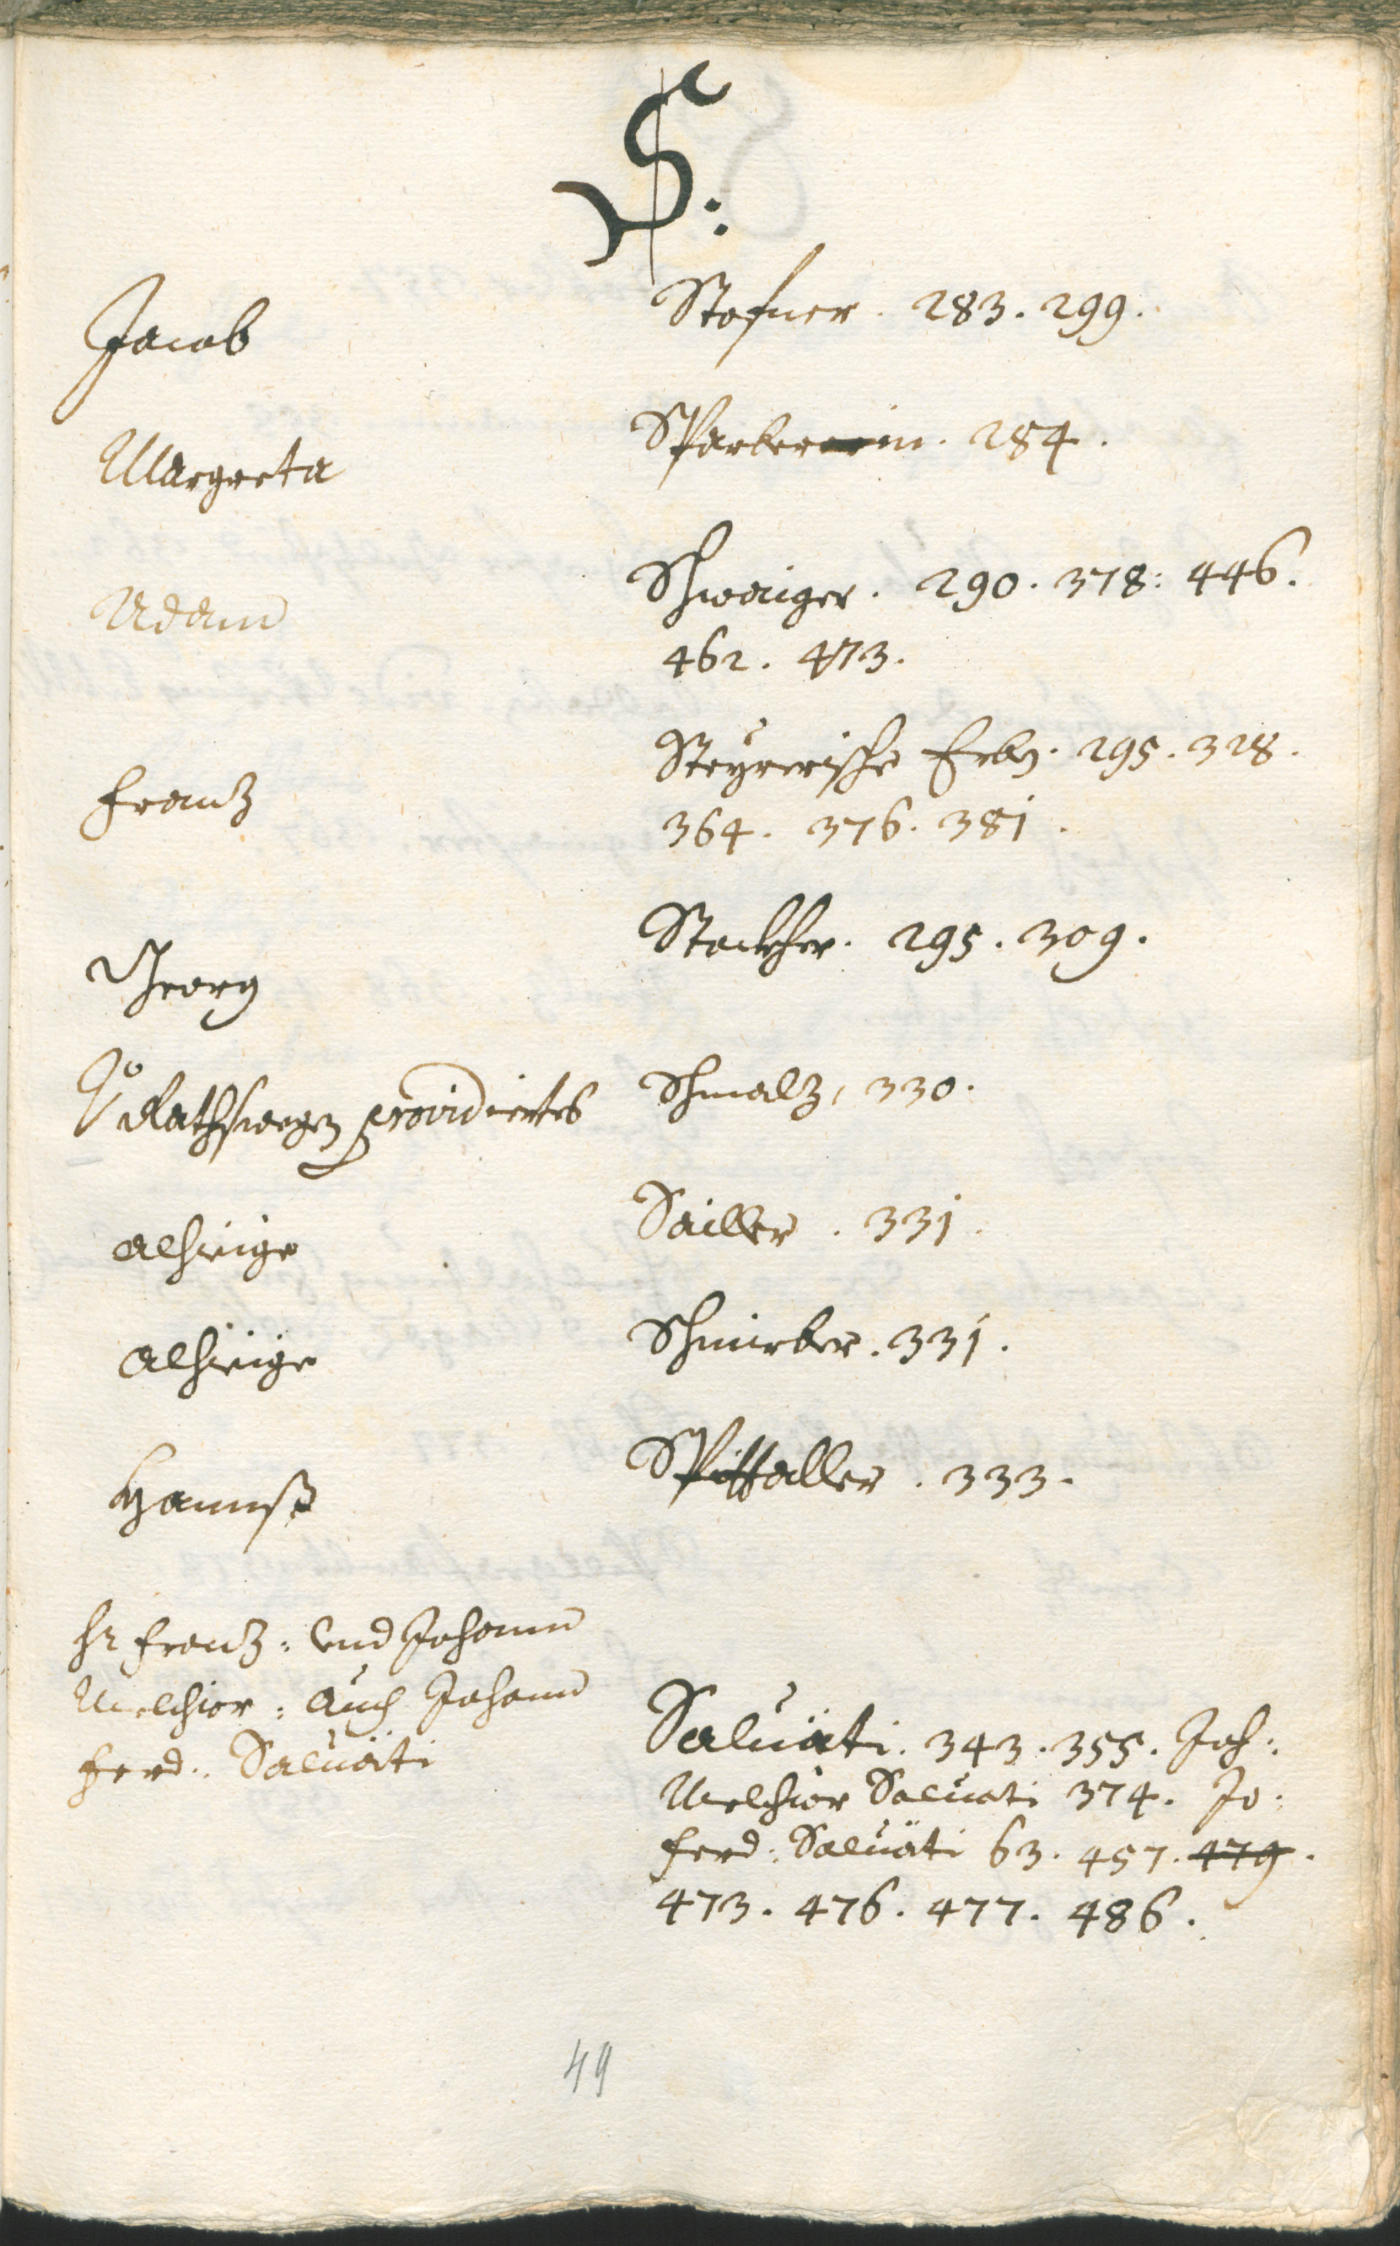 S:
Jacob Stofner. 283. 299.
Margreta Sparberin. 284.
Adam Schwaiger. 290. 378: 446.
462. 473.
Frantz Steyrerische Erbn. 295. 328.
364. 376. 381.
Georg Stockher. 295. 309.
Rathswegen providiertes Schmalz, 330.
alhieige Sailler. 331.
Alhieige Schmirber. 331.
Hannß Spittaller. 333.
Hr Frantz: vnd Johann
Melchior: Auch Johann
Ferd. Saluäti Saluäti. 343. 355. Joh:
Melchior Saluati 374. Jo.
Ferd: Saluäti 63. 457. 479.
473. 476. 477. 486.
49